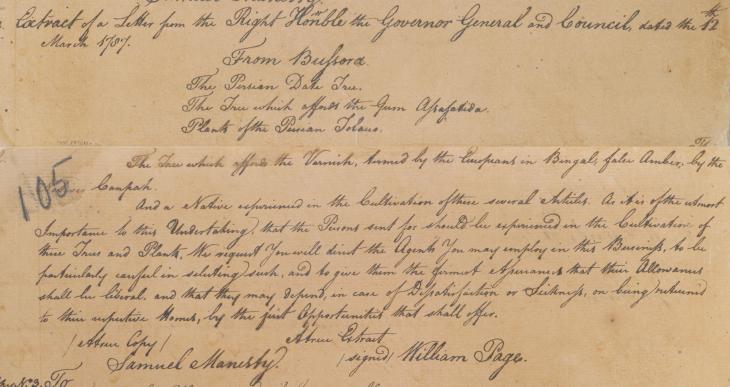 Extract of a Letter from the Right Honble the Governor General and Council, dated the 12th
March 1787.
From Bussora.
The Persian Date Tree.
The Tree which affords the Gum Assafatida.
Plants of the Persian Tobacco.
The Tree which affords the Varnish, termed by the Europeans in Bengal, false Amber, by the
Caupah.
105
And a Native experienced in the Cultivation of these several Articles. As it is of the utmost
Importance to this Undertaking, that the Persons sent for should be experienced in the Cultivation of
these Trees and Plants, We request You will direct the Agents You may employ in this Business, to be
particularly careful in selecting such, and to give them the firmest Assurances that their Allowances
shall be liberal, and that they may depend, in case of Dissatisfaction or Sickness, on being returned
to their respective Homes, by the first Opportunities that shall offer.
/A true Copy/ A true Extract
Samuel Manesty. /signed/ William Page.
No 3. To